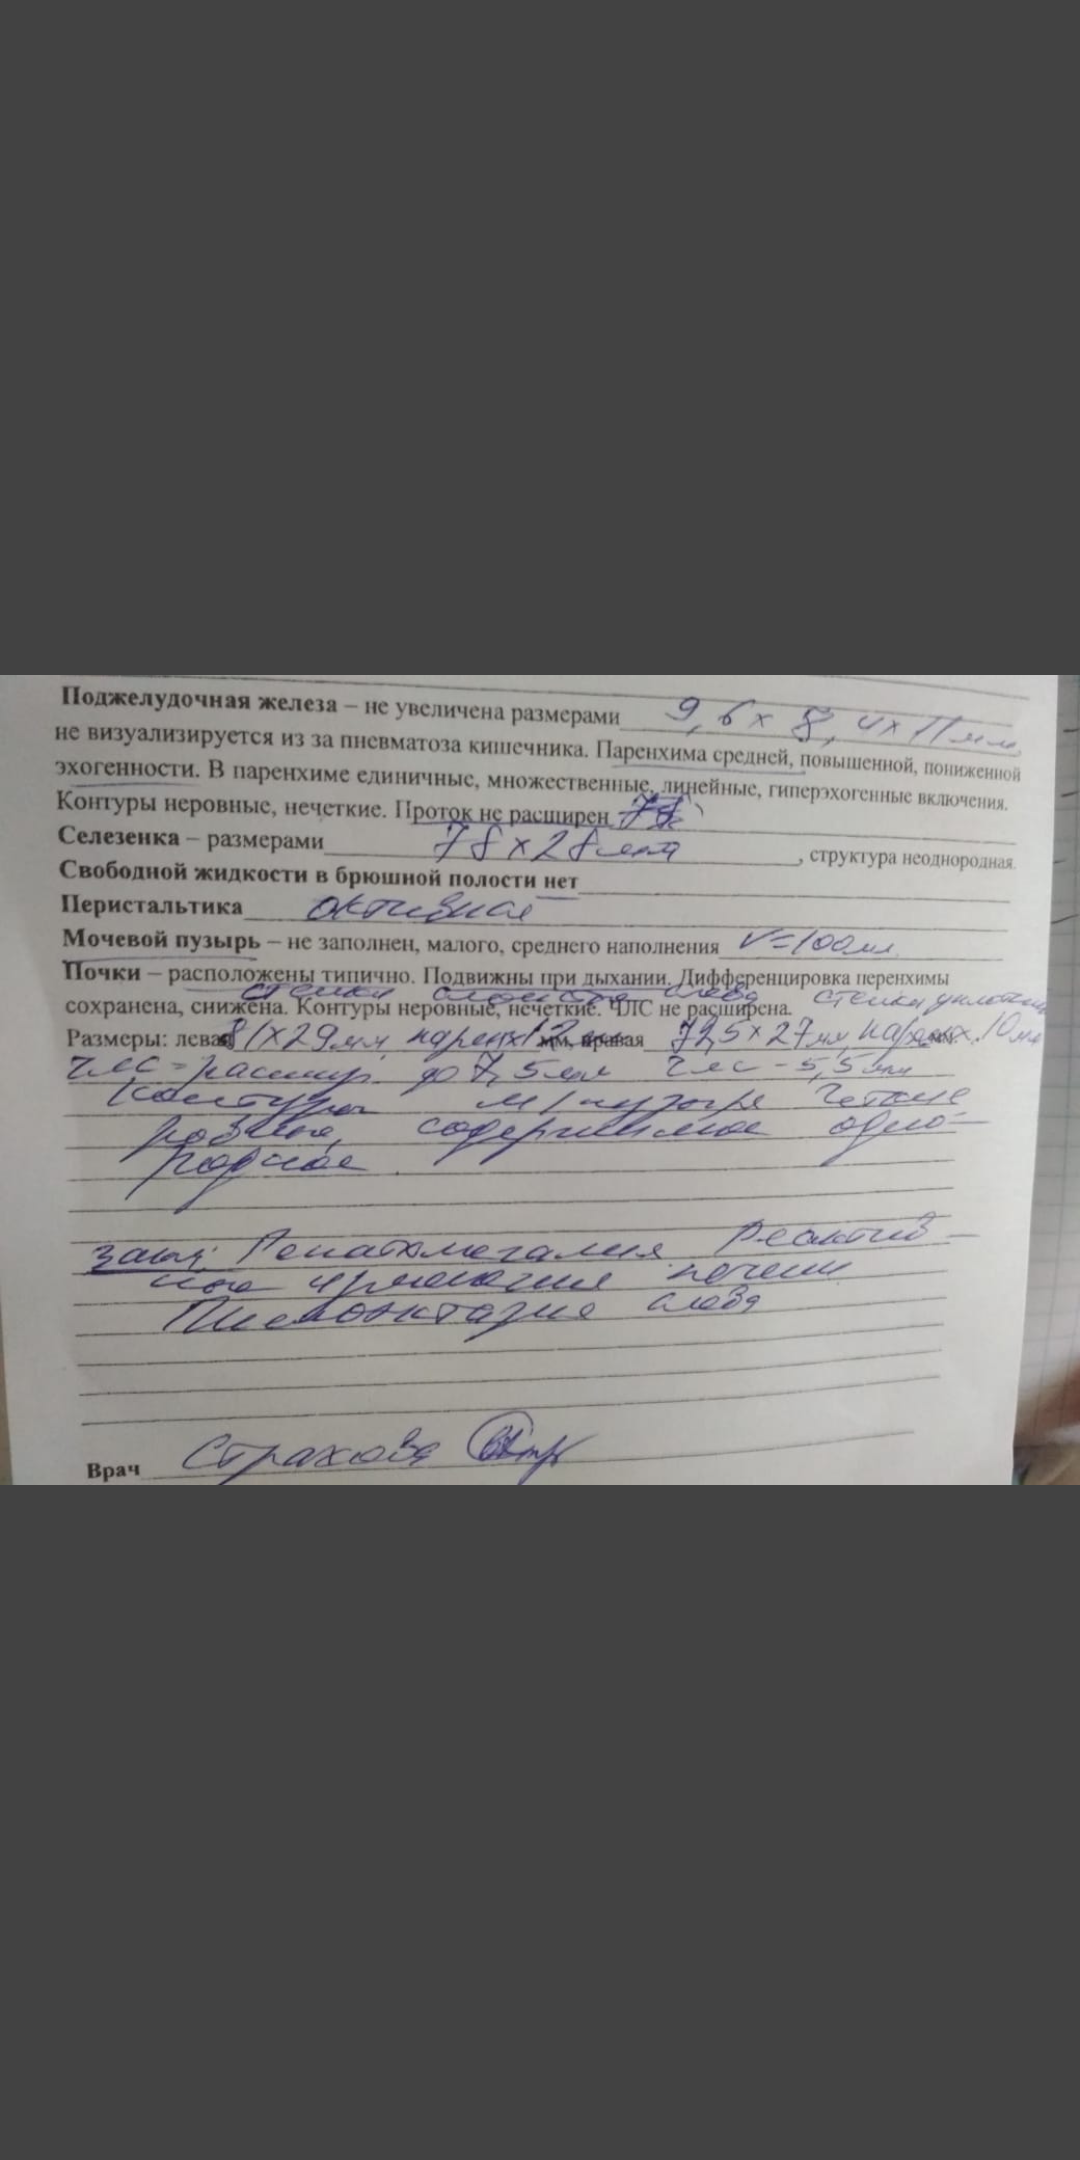 Поджелудочная железа – не увеличена размерами 9,6 х 8,4 х 11 мм,
не визуализируется из за пневматоза кишечника. Паренхима средней, повышенной, пониженной
эхогенности. В паренхиме единичные, множественные, линейные, гиперэхогенные включения.
Контуры неровные, нечеткие. Проток не расширен
Селезенка – размерами 78 х 28 мм , структура неоднородная.
Свободной жидкости в брюшной полости нет
Перистальтика активная
Мочевой пузырь – не заполнен, малого, среднего наполнения V=100мл.
Почки – расположены типично. Подвижны при дыхании. Дифференцировка перенхимы
стенки слева стенки
сохранена, снижена. Контуры неровные, нечеткие. ЧЛС не расширена.
Размеры: левая 81х29мм парен 12 мм, правая 72,5х27мм парен. 10 мм.
ЧЛС - расшир. до 7,5мм ЧЛС - 5,5мм
Контуры м/пузыря четкие
ровные, содержимое одно-
родное.
Закл: Гепатомегалия Реактив-
ные изменения печени
Пиелоэктазия слева
Врач Страхова